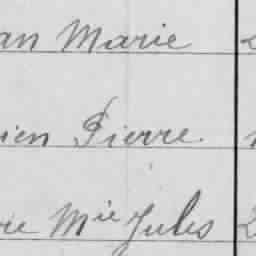 an Marie
ien Pierre
re Mie Jules